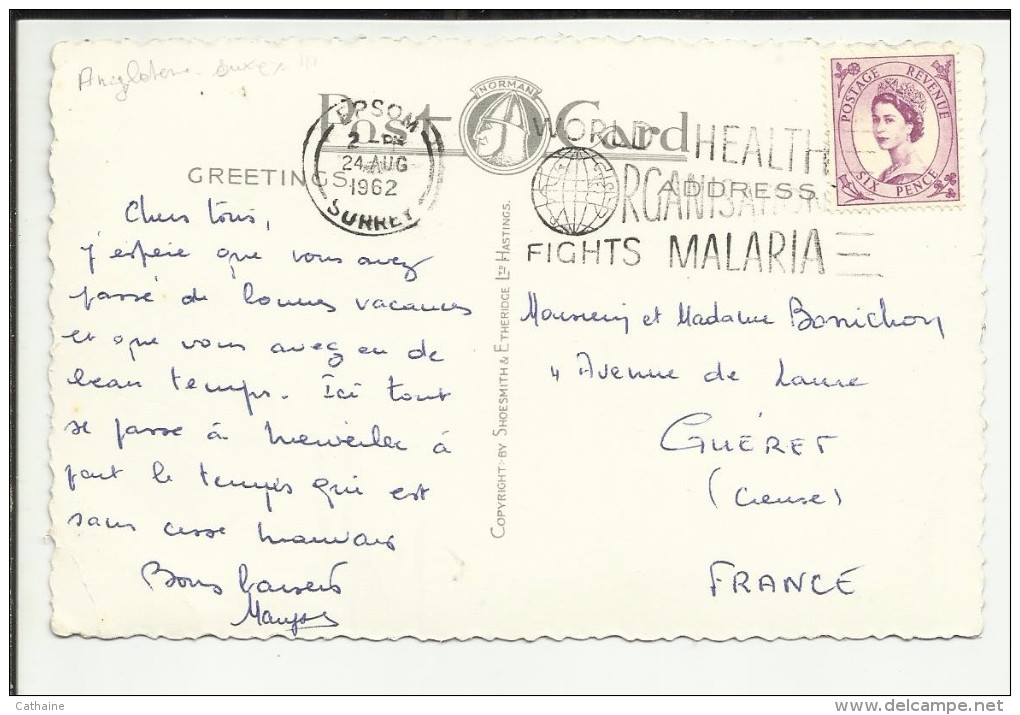 Angleterre
Post Card
NORMAN
GREETINGS
EPSOM
2 - PM
24 AUG
1962
SURREY
WORLD HEALTH
ORGANISATION
FIGHTS MALARIA
ADDRESS
POSTAGE REVENUE
SIX PENCE
Chers tous,
j'espère que vous avez
passé de bonnes vacances
et que vous avez eu de
beau temps. Ici tout
se passe à merveille à
part le temps qui est
sans cesse mauvais
Bons baisers
COPYRIGHT :- BY SHOESMITH & ETHERIDGE LTD HASTINGS.
Monsieur et Madame Bonnichon
4 Avenue de Laure
GUÉRET
(Creuse)
FRANCE
Cathaine
www.delcampe.net